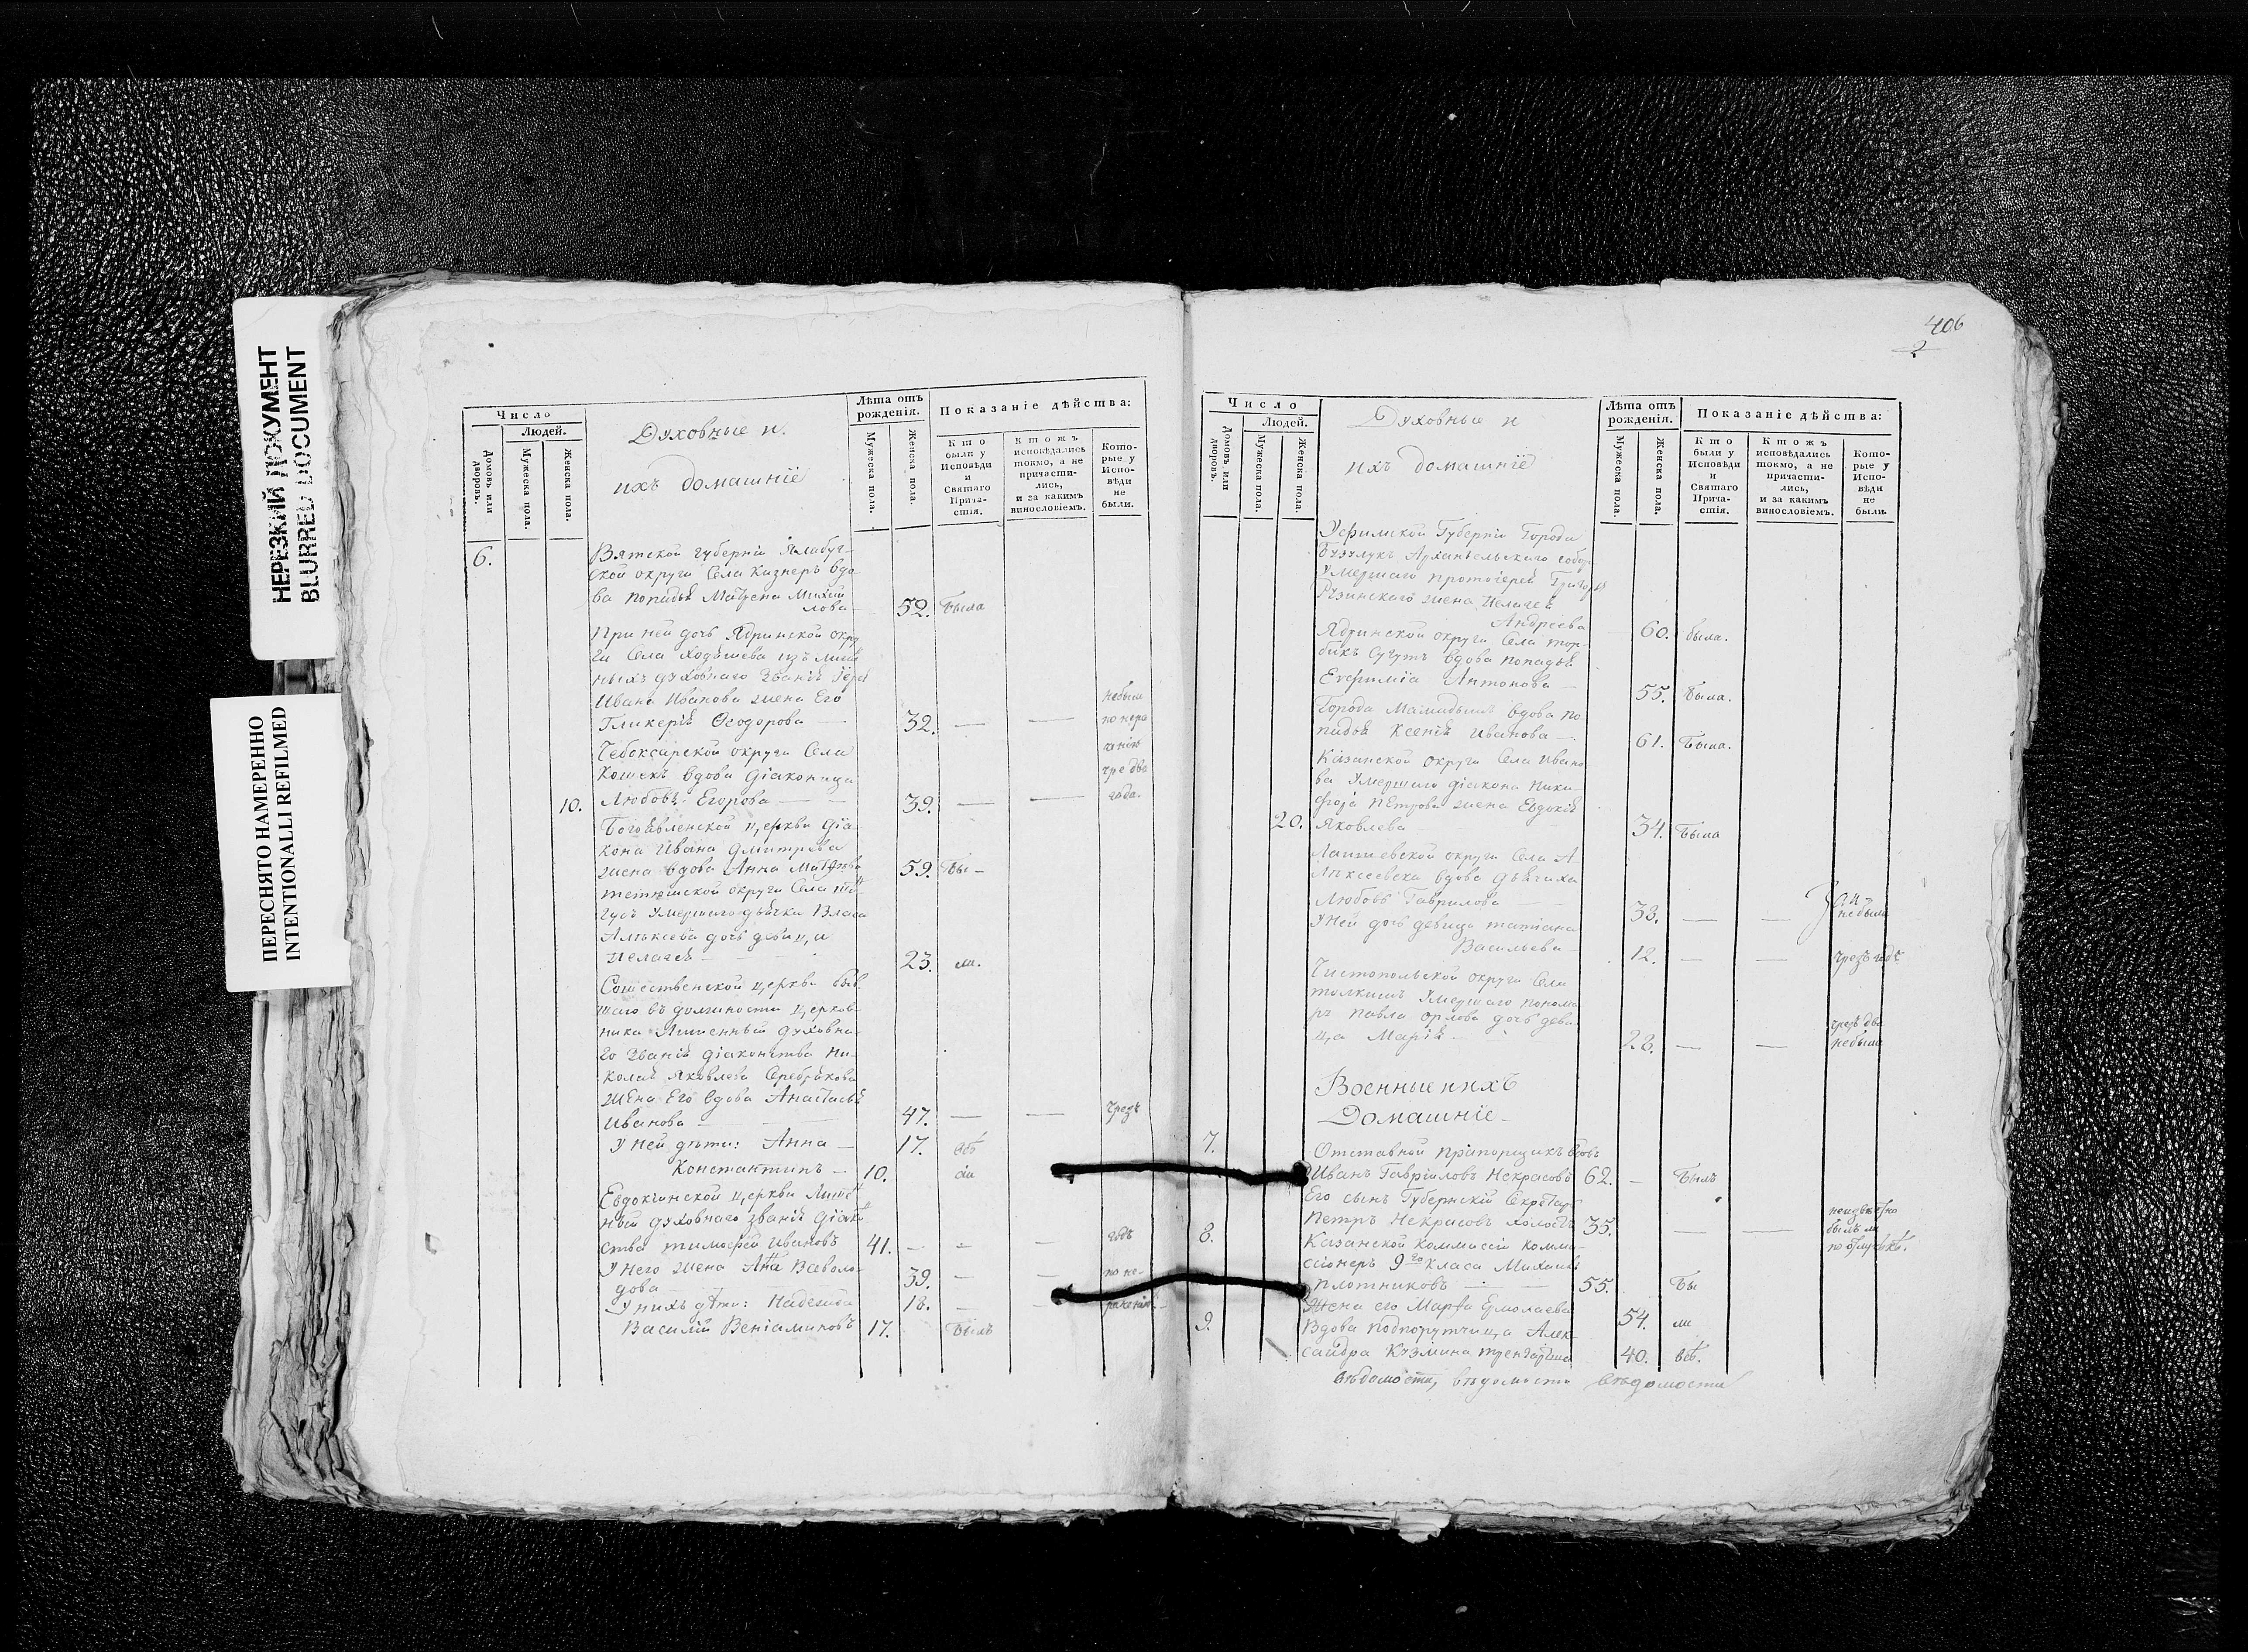 НЕРЕЗКИЙ ДОКУМЕНТ
BLURRED DOCUMENT
ПЕРЕСНЯТО НАМЕРЕННО
INTENTIONALLI REFILMED
Число
Людей.
Домовъ или дворовъ.
Мужеска пола.
Женска пола.
Духовные и
ихъ домашніе
Лѣта отъ рожденія.
Мужеска пола.
Женска пола.
Показаніе дѣйства:
Кто были у Исповѣди и Святаго Прича-стія.
Ктожъ исповѣдались токмо, а не причасти-лись, и за какимъ винословіемъ.
Кото-рые у Испо-вѣди не были.
6.
Вятской губерніи Елабуг-
ской округи Села Кизнеръ вдо-
ва попадья Матрена Михай
лова 52. Была
При ней дочь Ядринской окру
ги Села
ныхъ духовнаго званія
Ивана Иванова жена Его небыла
Гликерія Ѳеодорова 32. — —
Чебоксарской округи Села
Кошекъ вдова діаконица
10. Любовь Егорова — 39. — — года.
Богоявленской церкви діа
кона Ивана Дмитрева
жена вдова Анна 59. Бы-
тетюшской округи Села
умершаго дьячка Власа
Алексѣева дочь девица
Пелагея — 23. ли.
Сошественской церкви быв
шаго въ должности церков-
ника Лишенный духовна
го званія діаконства Ни-
колая Яковлева Серебрякова
жена Его вдова Анастасья
Иванова — 47. — — Чрезъ
У ней дѣти: Анна — 17. обѣ
Константинъ — 10.
Евдокіинской церкви
ный духовнаго званія діако
ства Тимофей Ивановъ 41. — — — годъ
У него жена Анна Всеволо-
дова 39. — — по не-
У нихъ дѣти: Надежда 18. — —
Василій Веніаминовъ 17. Былъ
406
2
Число
Людей.
Домовъ или дворовъ.
Мужеска пола.
Женска пола.
Духовные и
ихъ домашніе
Лѣта отъ рожденія.
Мужеска пола.
Женска пола.
Показаніе дѣйства:
Кто были у Исповѣди и Святаго Прича-стія.
Ктожъ исповѣдались токмо, а не причасти-лись, и за какимъ винословіемъ.
Кото-рые у Испо-вѣди не были.
Уфимской Губерніи Города
Бузулукъ Архангельскаго собора
Умершаго протоіерея Григорья
жена Пелагея
Андреева 60. была.
Ядринской округи Села
вдова попадья
Евфимія Антонова — 55. Была.
Города Мамадышъ вдова по
падья Ксенія Иванова — 61. Была.
Казанской округи Села Ивано
ва Умершаго діакона Ники-
фора Петрова жена Евдокія
20. Яковлева 34. Была
Лаишевской округи Села А
лѣксеевска вдова дьячиха
Любовь Гаврилова 33. — — небыла
У ней дочь девица татіана
Васильева — 12. — — Чрезъ годъ
Чистопольской округи Села
толкишъ Умершаго понома
ря Павла Орлова дочь деви чрезъ два
ца Марія 28. — — небыла
Военные и ихъ
Домашніе
7. Отставной прапорщикъ
Иванъ Гавриловъ Некрасовъ 62. — Былъ
Его сынъ Губернскій Секретар
Петръ Некрасовъ холостъ 35. — —
8. Казанской коммисіи комми-
сіонеръ 9го класа Михаилъ
Плотниковъ — 55. Бы
Жена его Марфа Ермолаева 54. ли
9. Вдова подпорутчица Алек-
сандра Кузмина 40. всѣ.
вѣдомости, вѣдомости вѣдомости